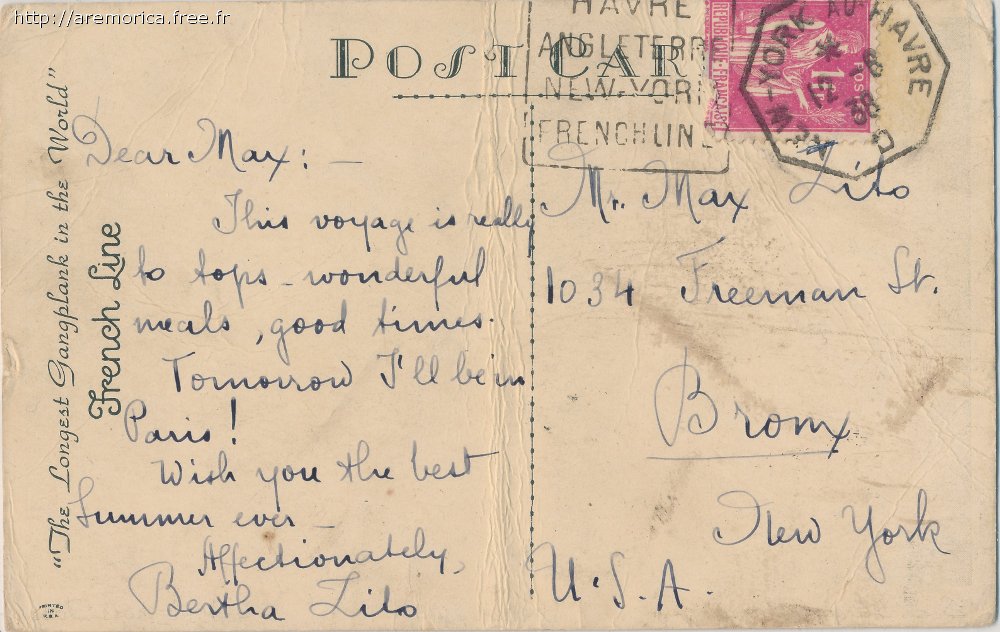 http://aremorica.free.fr
POST CAR
HAVRE
ANGLETERR
NEW-YORK
FRENCH LINE
NEW-YORK AU HAVRE
12 -8
38
REPUBLIQUE-FRANÇAISE
POSTES
"The Longest Gangplank in the World"
French Line
PRINTED
IN
U.S.A.
Dear Max: -
This voyage is really
to tops - wonderful
meals, good times.
Tomorrow I'll be in
Paris!
Wish you the best
Summer ever -
Affectionately,
Bertha Lito
Mr. Max Lito
1034 Freeman St.
Bronx
New York
U.S.A.